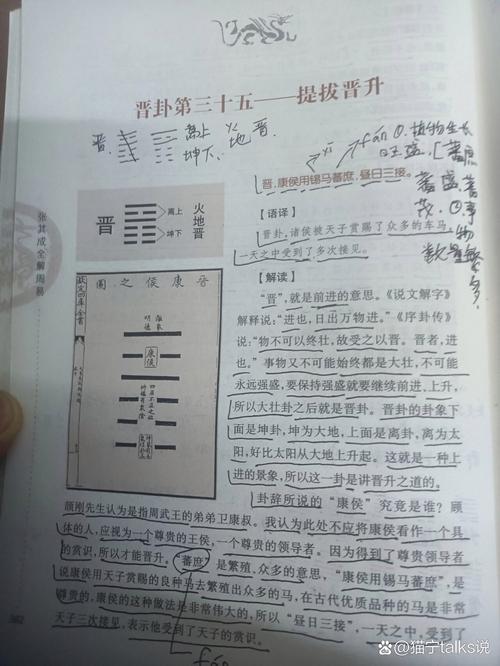 晋卦第三十五——提拔晋升
晋. 离上 火 晋.
坤下. 地
xī fán ①.植物生长
旺盛,[蕃庶
蕃盛 蕃
茂. ②.事物
数量繁
多.
晋,康侯用锡马蕃庶,昼日三接。
【语译】
晋卦,诸侯被天子赏赐了众多的车马,
一天之中受到了多次接见。
【解读】
“晋”,就是前进的意思。《说文解字》
解释说:“进也,日出万物进。”《序卦传》
说:“物不可以终壮,故受之以晋。晋者,进
也。”事物又不可能始终都是大壮,不可能
永远强盛,要保持强盛就要继续前进、上升,
所以大壮卦之后就是晋卦。晋卦的卦象下
面是坤卦,坤为大地,上面是离卦,离为太
阳,好比太阳从大地上升起。这就是一种上
进的景象,所以这一卦是讲晋升之道的。
卦辞所说的“康侯”究竟是谁?顾
颉刚先生认为是指周武王的弟弟卫康叔。我认为此处不应将康侯看作一个具
体的人,应视为一个尊贵的王侯,一个尊贵的领导者。因为得到了尊贵领导者
的赏识,所以才能晋升。“蕃庶”是繁殖、众多的意思,“康侯用锡马蕃庶”,是
说康侯用天子赏赐的良种马去繁殖出众多的马,在古代优质品种的马是非常
尊贵的,康侯的这种做法是非常伟大的,所以“昼日三接”,一天之中,受到了
天子三次接见,表示他受到了天子的赏识。
fán
晋
离上
坤下
火地晋
晋康侯之图
钦定四库全书
康侯
张其成全解周易
362
@猫宁talks说